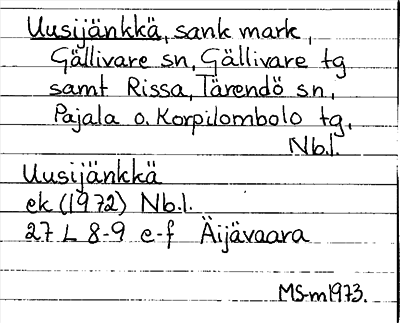 Uusijänkkä, sank mark,
Gällivare sn, Gällivare tg
samt Rissa, Tärendö sn,
Pajala o. Korpilombolo tg,
Nb.l.
Uusijänkkä
ek (1972) Nb.l.
27 L 8-9 e-f Äijävaara
MS-m1973.